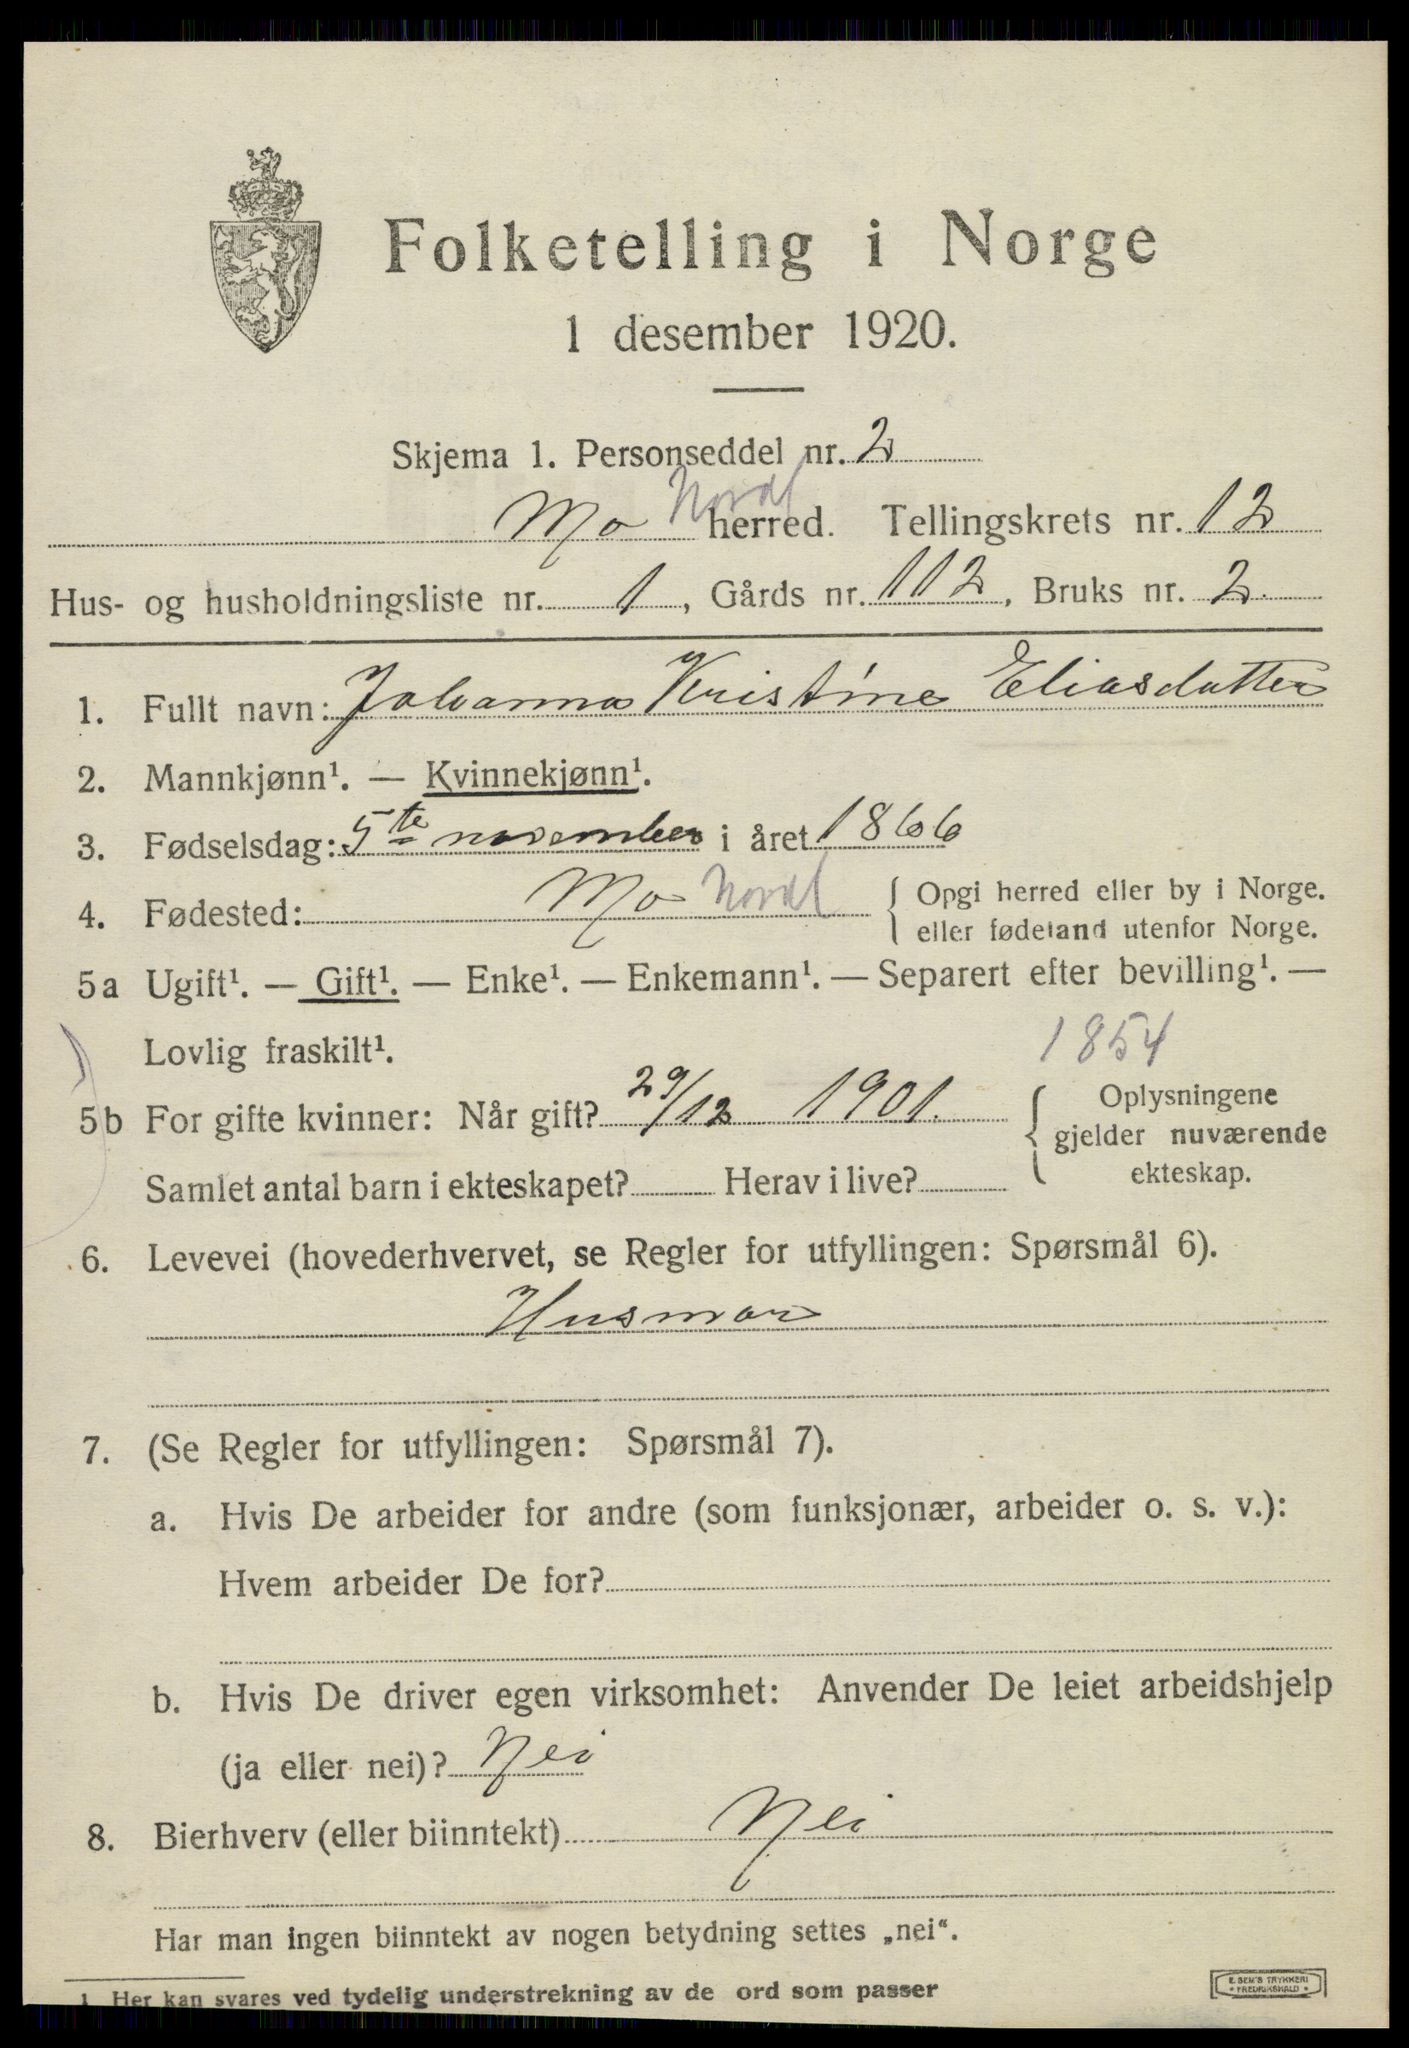 Folketelling i Norge
1 desember 1920.
Skjema 1. Personseddel nr. 2
Mo Nordl herred. Tellingskrets nr. 12
Hus- og husholdningsliste nr. 1, Gårds nr. 112, Bruks nr. 2.
1. Fullt navn: Johanna Kristine Eliasdatter
2. Mannkjønn¹. — Kvinnekjønn¹.
3. Fødselsdag: 5te november i året 1866
4. Fødested: Mo Nordl { Opgi herred eller by i Norge.
eller fødeland utenfor Norge.
5a Ugift¹. — Gift¹. — Enke¹. — Enkemann¹. — Separert efter bevilling¹. —
Lovlig fraskilt¹. 1854
5b For gifte kvinner: Når gift? 29/12 1901. { Oplysningene
gjelder nuværende
Samlet antal barn i ekteskapet? Herav i live? ekteskap.
6. Levevei (hovederhvervet, se Regler for utfyllingen: Spørsmål 6).
Husmor
7. (Se Regler for utfyllingen: Spørsmål 7).
a. Hvis De arbeider for andre (som funksjonær, arbeider o. s. v.):
Hvem arbeider De for?
b. Hvis De driver egen virksomhet: Anvender De leiet arbeidshjelp
(ja eller nei)? Nei
8. Bierhverv (eller biinntekt) Nei
Har man ingen biinntekt av nogen betydning settes „nei“.
1 Her kan svares ved tydelig understrekning av de ord som passer
E. SEM'S TRYKKERI
* FREDRIKSHALD *